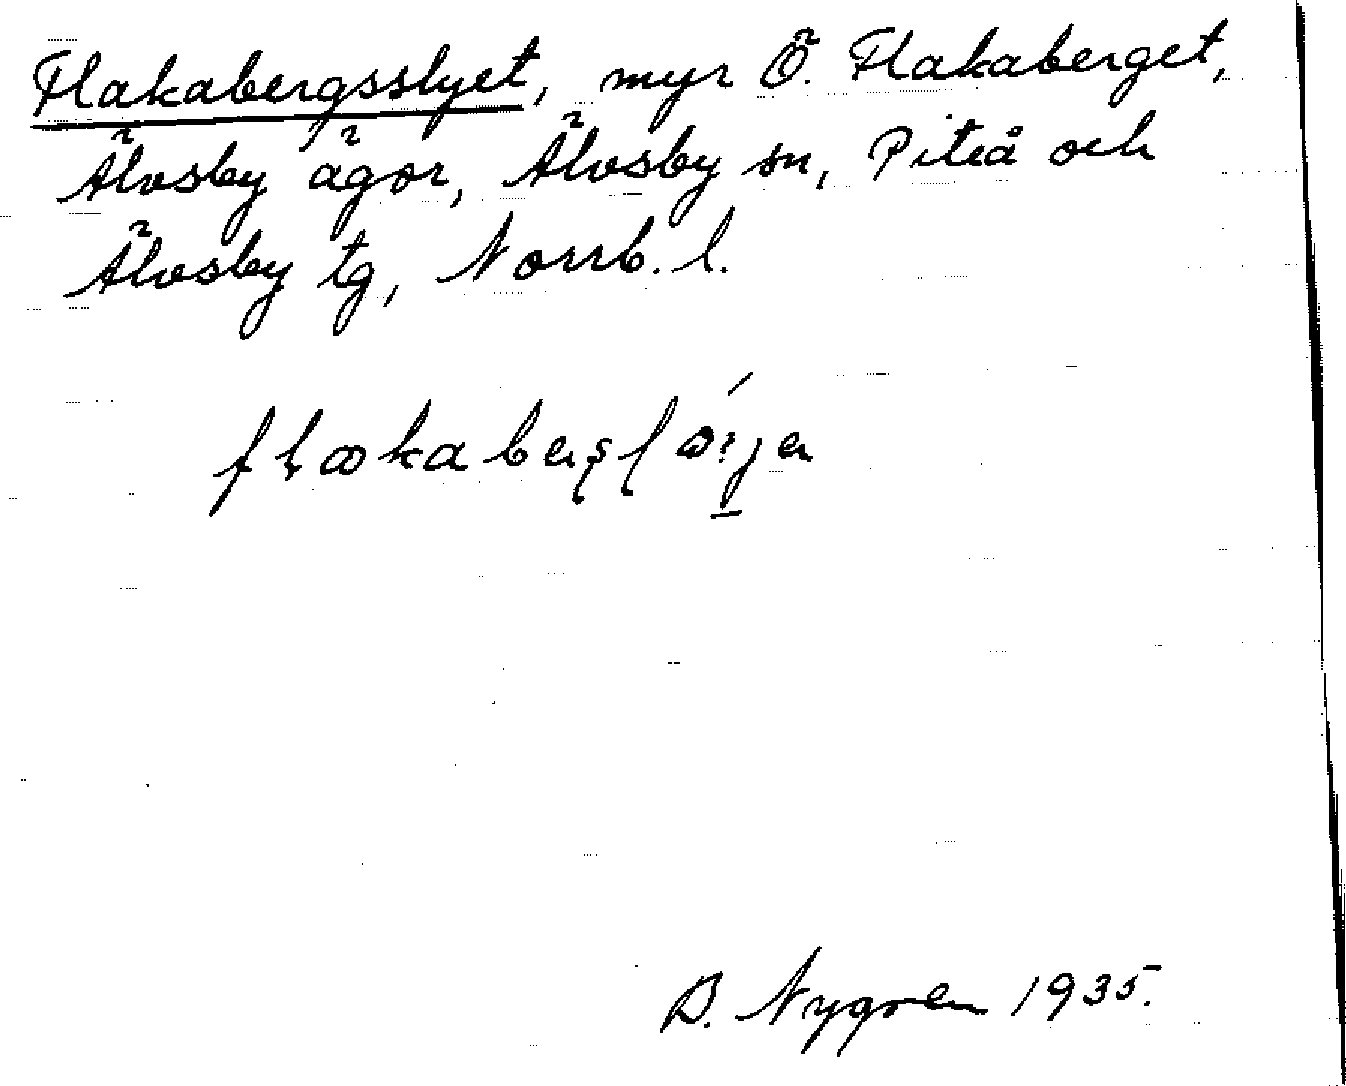 Flakabergsslyet, myr Ö. Flakaberget,
Älvsby ägor, Älvsby sn, Piteå och
Älvsby tg, Norrb. l.
B. Nygren 1935.